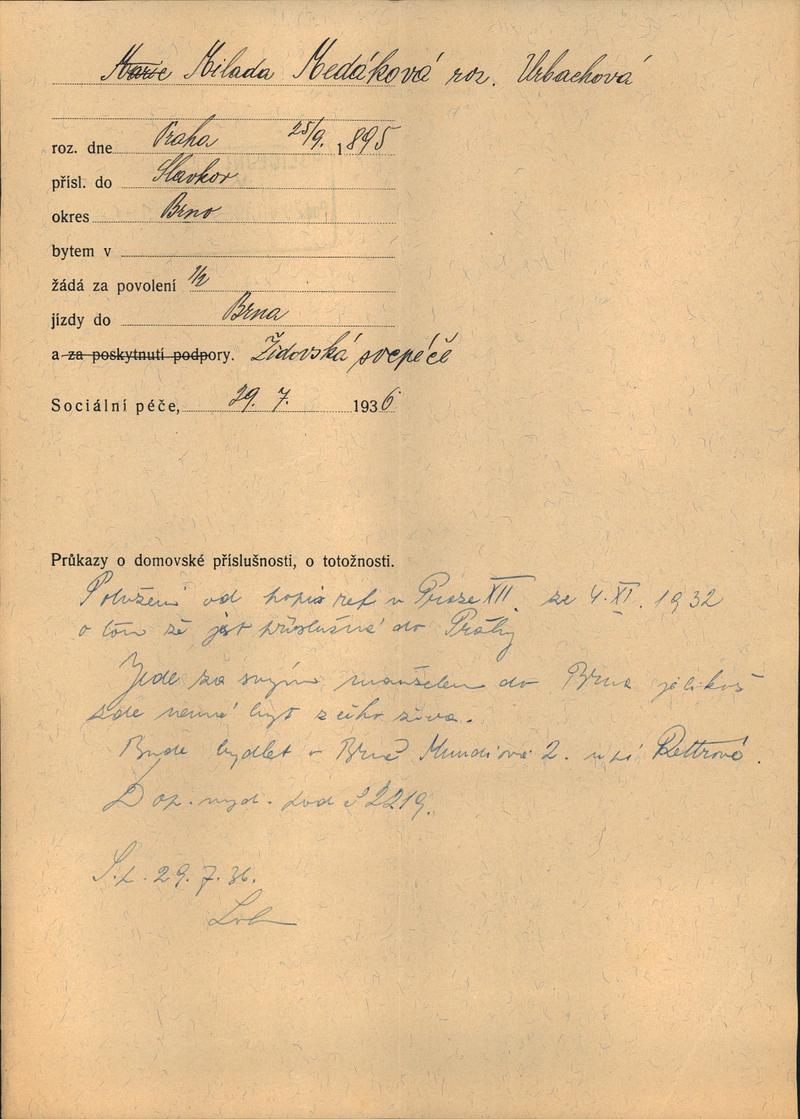 Milada Medáková roz. Urbachová
roz. dne Praha 25/9. 1895
přísl. do Slavkov
okres Brno
bytem v
žádá za povolení 1/2
jízdy do Brna
a za poskytnutí podpory. Židovská svépéče
Sociální péče, 29. 7. 1936
Průkazy o domovské příslušnosti, o totožnosti.
od v Praze XII. ze 4. XI. 1932
o tom že jest příslušná do Prahy
Jede za svým manželem do Brna jelikož
zde nemá být z čeho živa.
Bude bydlet v Brně 2. u pí
Dop. vyd. pod 2219.
29. 7. 36.